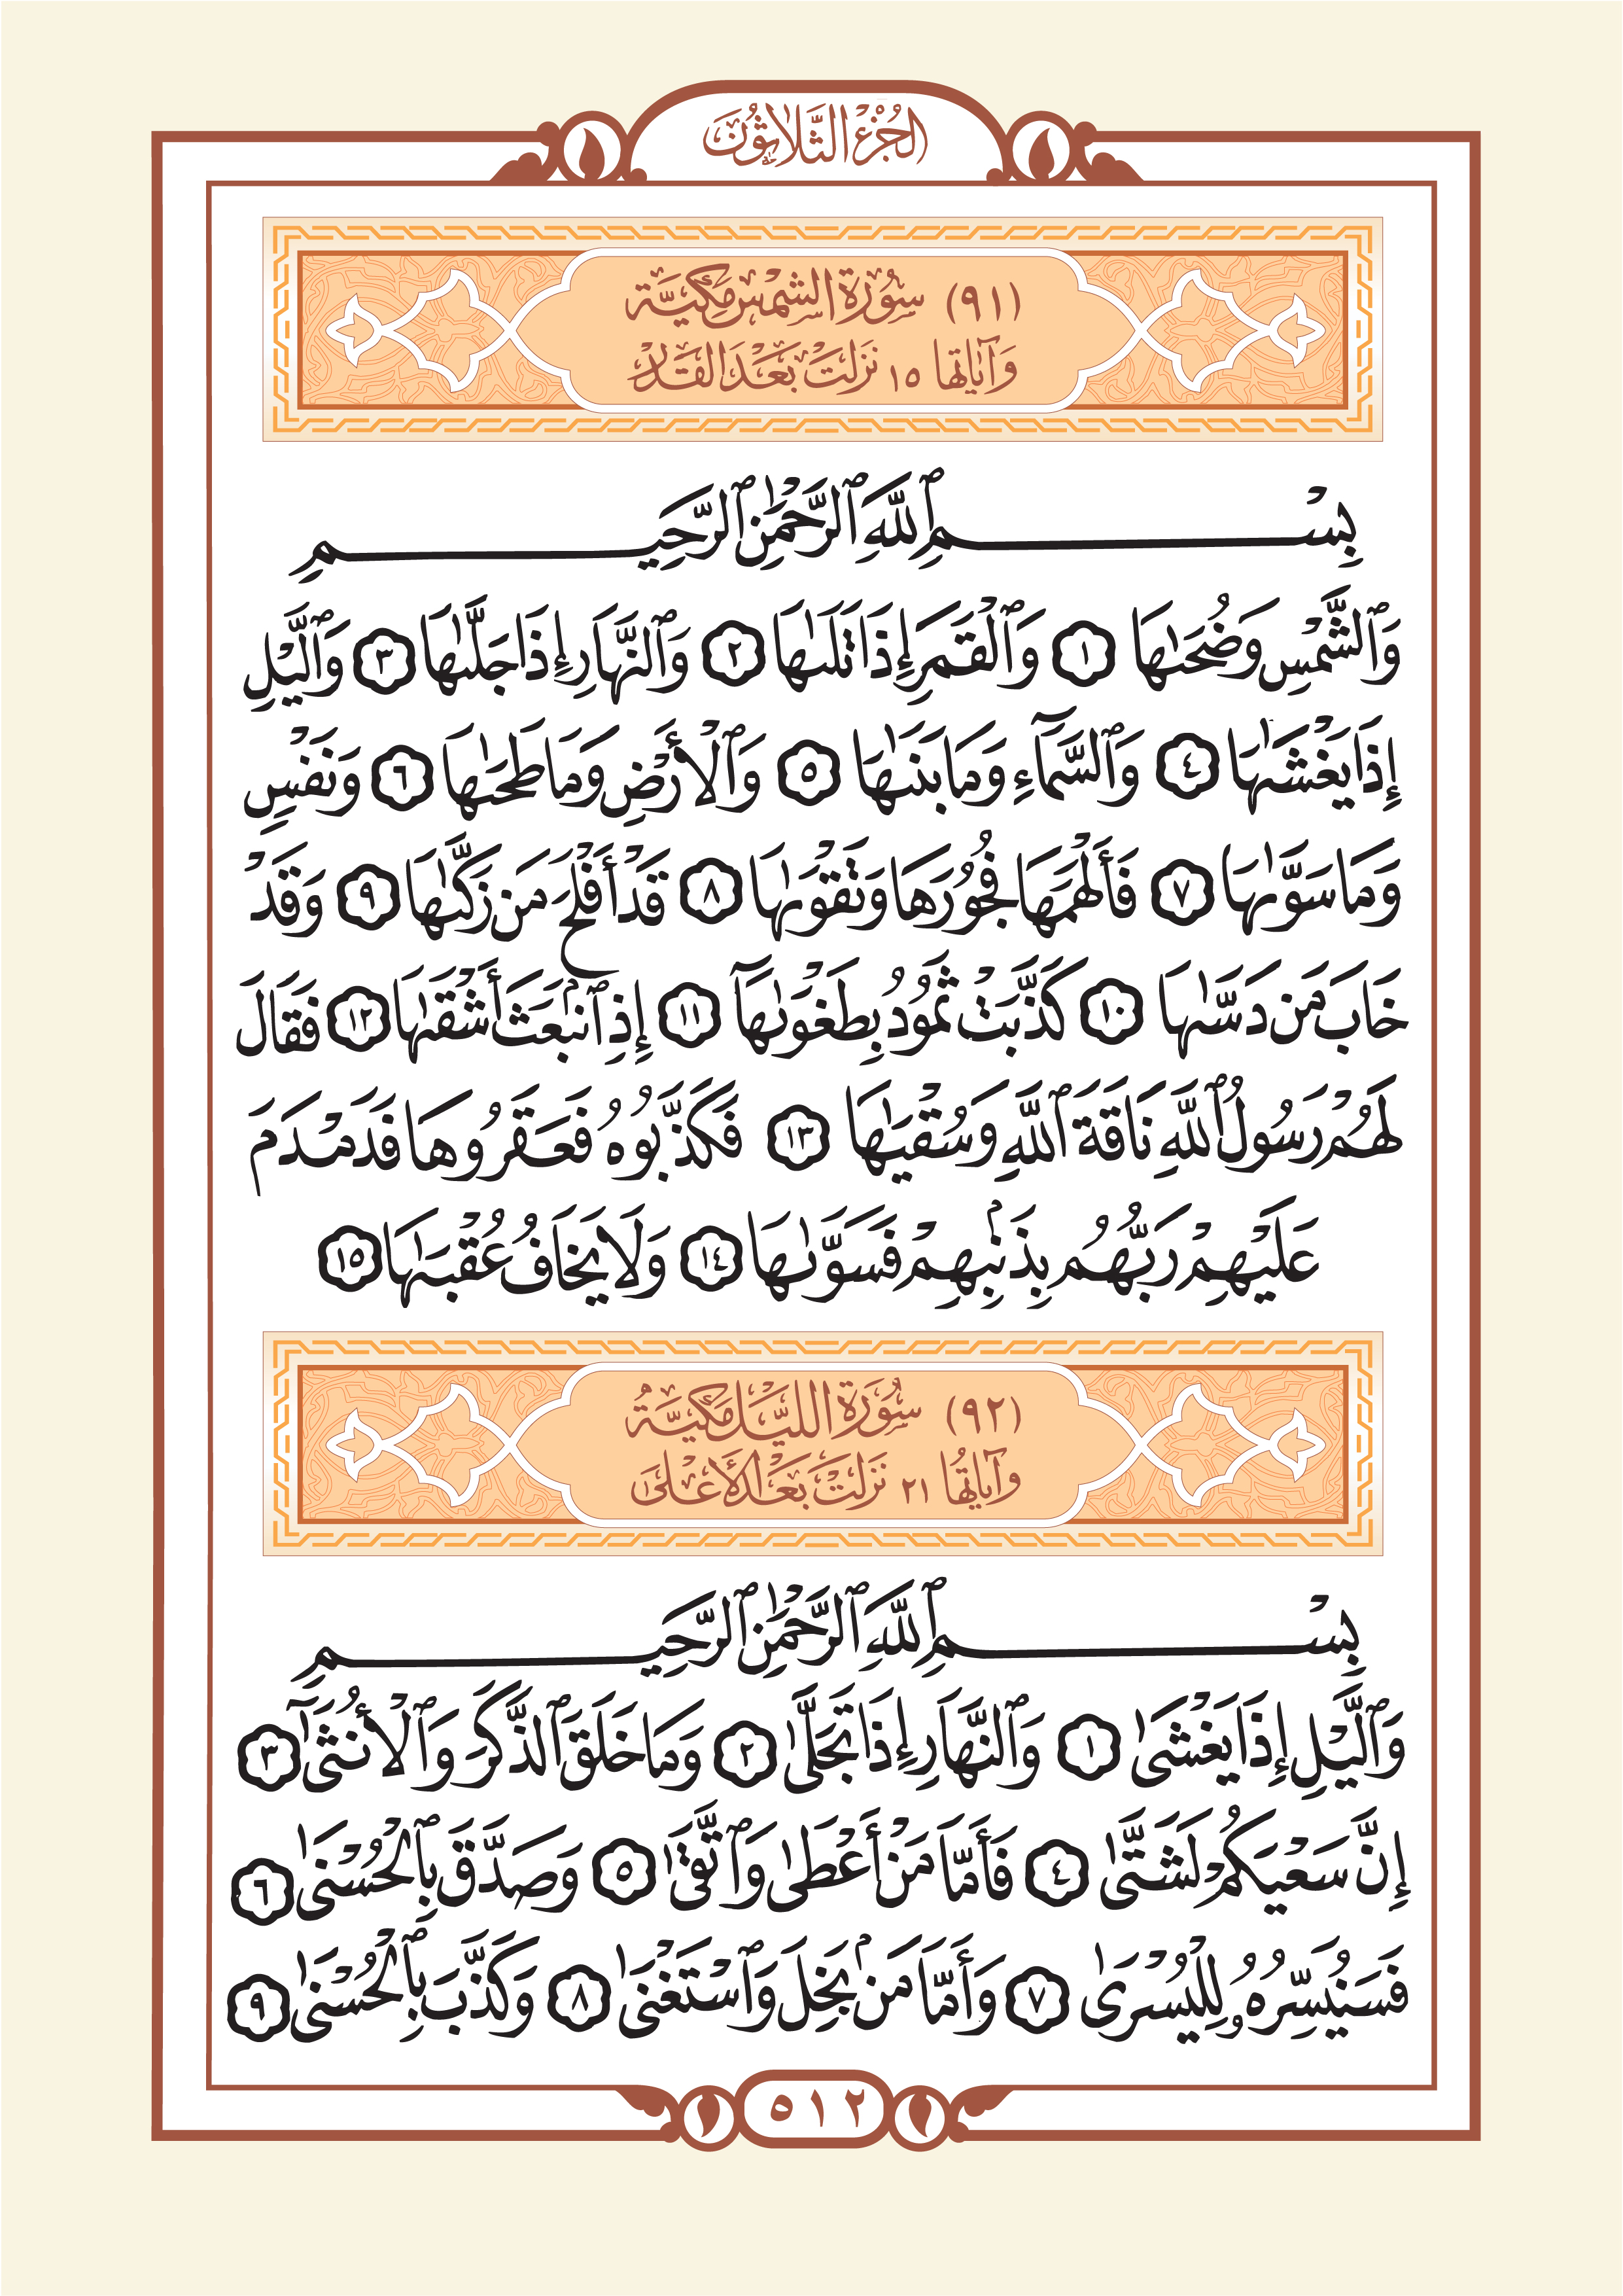 الجُزْءُ الثَّلَاثُونَ
(٩١) سُورَةُ الشَّمْسِ مَكِّيَّة
وَآيَاتُهَا ١٥ نَزَلَتْ بَعْدَ القَدْر
بِسْمِ ٱللَّهِ ٱلرَّحْمَٰنِ ٱلرَّحِيمِ
وَٱلشَّمْسِ وَضُحَىٰهَا ١ وَٱلْقَمَرِ إِذَا تَلَىٰهَا ٢ وَٱلنَّهَارِ إِذَا جَلَّىٰهَا ٣ وَٱلَّيْلِ
إِذَا يَغْشَىٰهَا ٤ وَٱلسَّمَآءِ وَمَا بَنَىٰهَا ٥ وَٱلْأَرْضِ وَمَا طَحَىٰهَا ٦ وَنَفْسٍ
وَمَا سَوَّىٰهَا ٧ فَأَلْهَمَهَا فُجُورَهَا وَتَقْوَىٰهَا ٨ قَدْ أَفْلَحَ مَن زَكَّىٰهَا ٩ وَقَدْ
خَابَ مَن دَسَّىٰهَا ١٠ كَذَّبَتْ ثَمُودُ بِطَغْوَىٰهَآ ١١ إِذِ ٱنۢبَعَثَ أَشْقَىٰهَا ١٢ فَقَالَ
لَهُمْ رَسُولُ ٱللَّهِ نَاقَةَ ٱللَّهِ وَسُقْيَٰهَا ١٣ فَكَذَّبُوهُ فَعَقَرُوهَا فَدَمْدَمَ
عَلَيْهِمْ رَبُّهُم بِذَنۢبِهِمْ فَسَوَّىٰهَا ١٤ وَلَا يَخَافُ عُقْبَٰهَا ١٥
(٩٢) سُورَةُ اللَّيْلِ مَكِّيَّةُ
وَآيَاتُهَا ٢١ نَزَلَتْ بَعْدَ الأَعْلَىٰ
بِسْمِ ٱللَّهِ ٱلرَّحْمَٰنِ ٱلرَّحِيمِ
وَٱلَّيْلِ إِذَا يَغْشَىٰ ١ وَٱلنَّهَارِ إِذَا تَجَلَّىٰ ٢ وَمَا خَلَقَ ٱلذَّكَرَ وَٱلْأُنثَىٰٓ ٣
إِنَّ سَعْيَكُمْ لَشَتَّىٰ ٤ فَأَمَّا مَنْ أَعْطَىٰ وَٱتَّقَىٰ ٥ وَصَدَّقَ بِٱلْحُسْنَىٰ ٦
فَسَنُيَسِّرُهُۥ لِلْيُسْرَىٰ ٧ وَأَمَّا مَنۢ بَخِلَ وَٱسْتَغْنَىٰ ٨ وَكَذَّبَ بِٱلْحُسْنَىٰ ٩
٥١٢